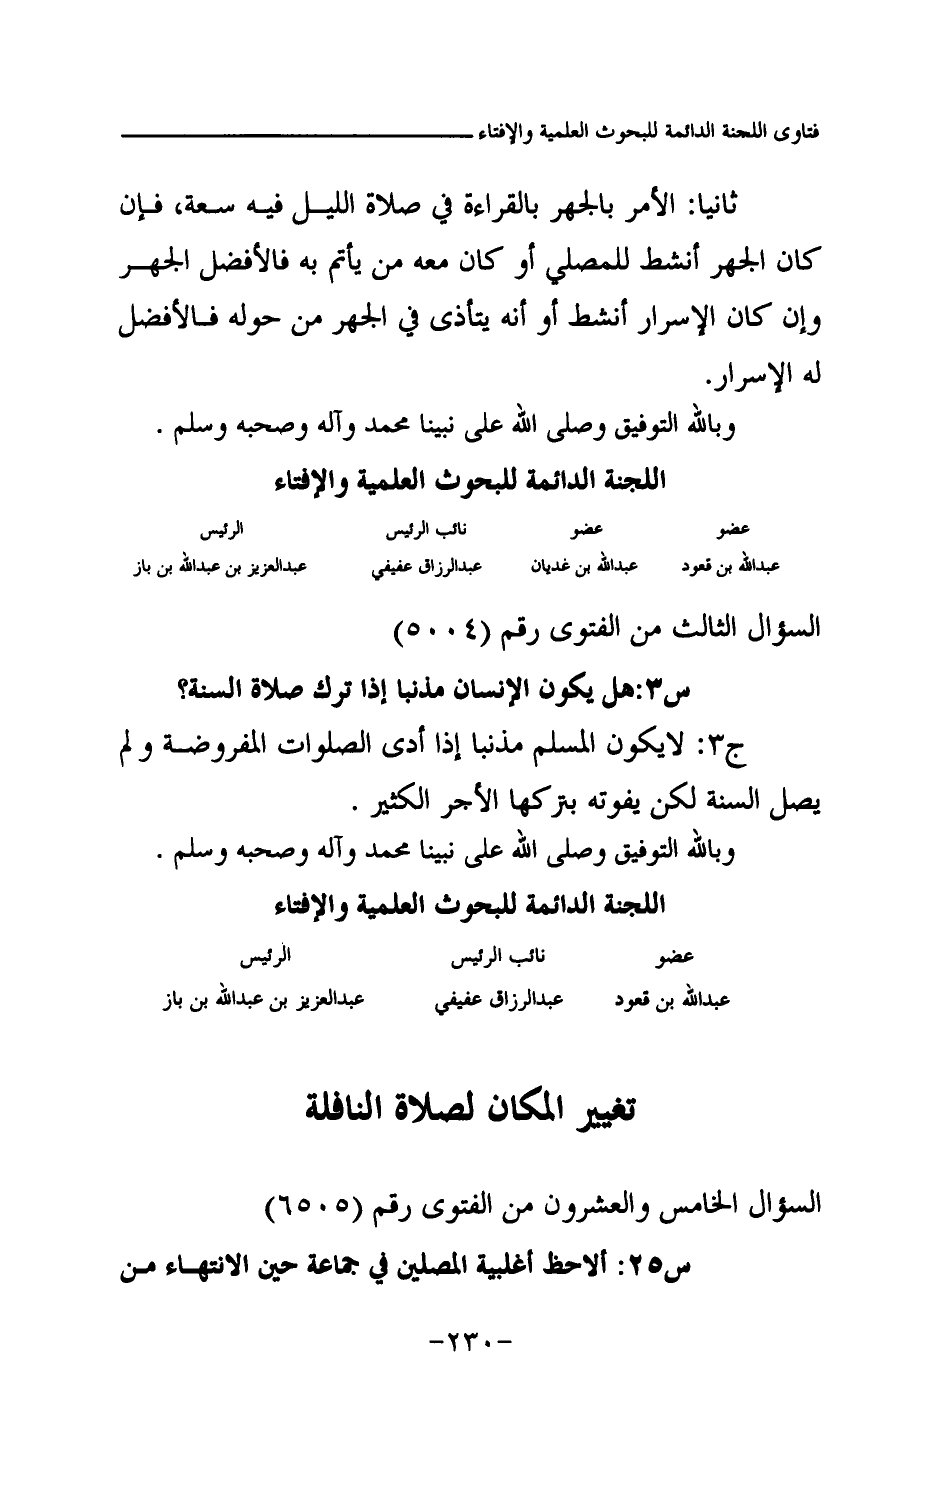 فتاوى اللجنة الدائمة للبحوث العلمية والإفتاء
ثانيا: الأمر بالجهر بالقراءة في صلاة الليل فيه سعة، فإن
كان الجهر أنشط للمصلي أو كان معه من يأتم به فالأفضل الجهر
وإن كان الإسرار أنشط أو أنه يتأذى في الجهر من حوله فالأفضل
له الإسرار.
وبالله التوفيق وصلى الله على نبينا محمد وآله وصحبه وسلم .
اللجنة الدائمة للبحوث العلمية والإفتاء
عضو عضو نائب الرئيس الرئيس
عبدالله بن قعود عبدالله بن غديان عبدالرزاق عفيفي عبدالعزيز بن عبدالله بن باز
السؤال الثالث من الفتوى رقم (٥٠٠٤)
س٣:هل يكون الإنسان مذنبا إذا ترك صلاة السنة؟
ج٣: لايكون المسلم مذنبا إذا أدى الصلوات المفروضة و لم
يصل السنة لكن يفوته بتركها الأجر الكثير .
وبالله التوفيق وصلى الله على نبينا محمد وآله وصحبه وسلم .
اللجنة الدائمة للبحوث العلمية والإفتاء
عضو نائب الرئيس الرئيس
عبدالله بن قعود عبدالرزاق عفيفي عبدالعزيز بن عبدالله بن باز
تغيير المكان لصلاة النافلة
السؤال الخامس والعشرون من الفتوى رقم (٦٥٠٥)
س٢٥: ألاحظ أغلبية المصلين في جماعة حين الانتهاء من
-٢٣٠-